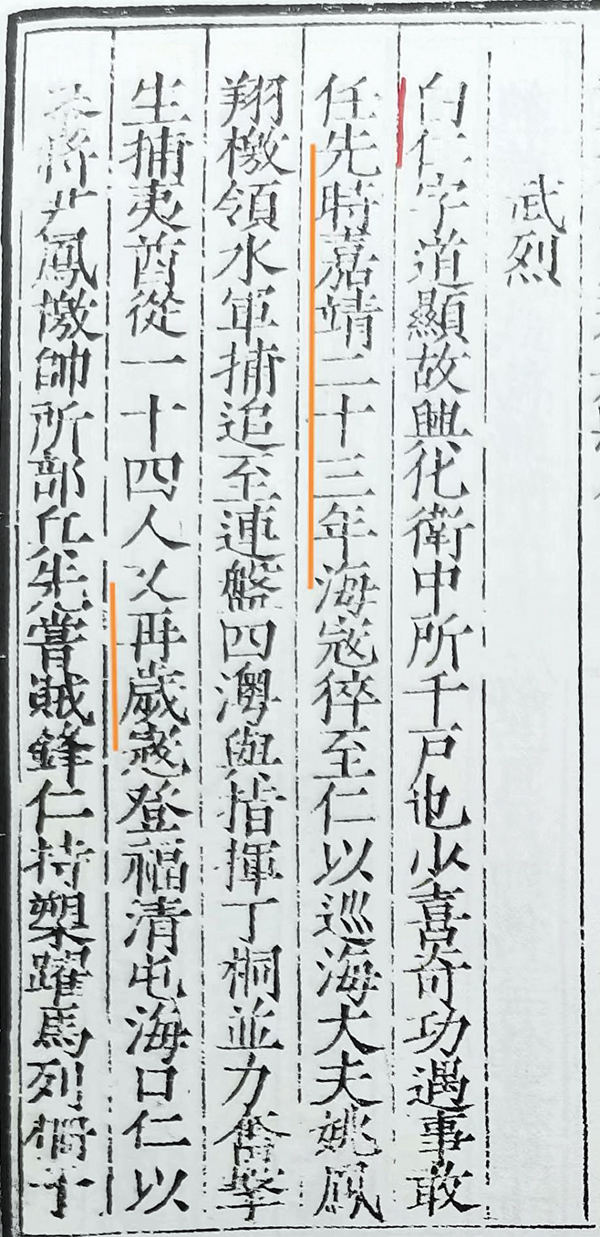 武烈
白仁字道顯故興化衛中所千戶也少喜奇功遇事敢
任先時嘉靖二十三年海寇猝至仁以巡海大夫姚鳳
翔檄領水軍捕追至連盤四澳與指揮丁桐並力奮擊
生捕夷酋從一十四人又再歲寇登福清屯海口仁以
將尹鳳檄帥所部兵先嘗賊鋒仁持槊躍馬列幟于